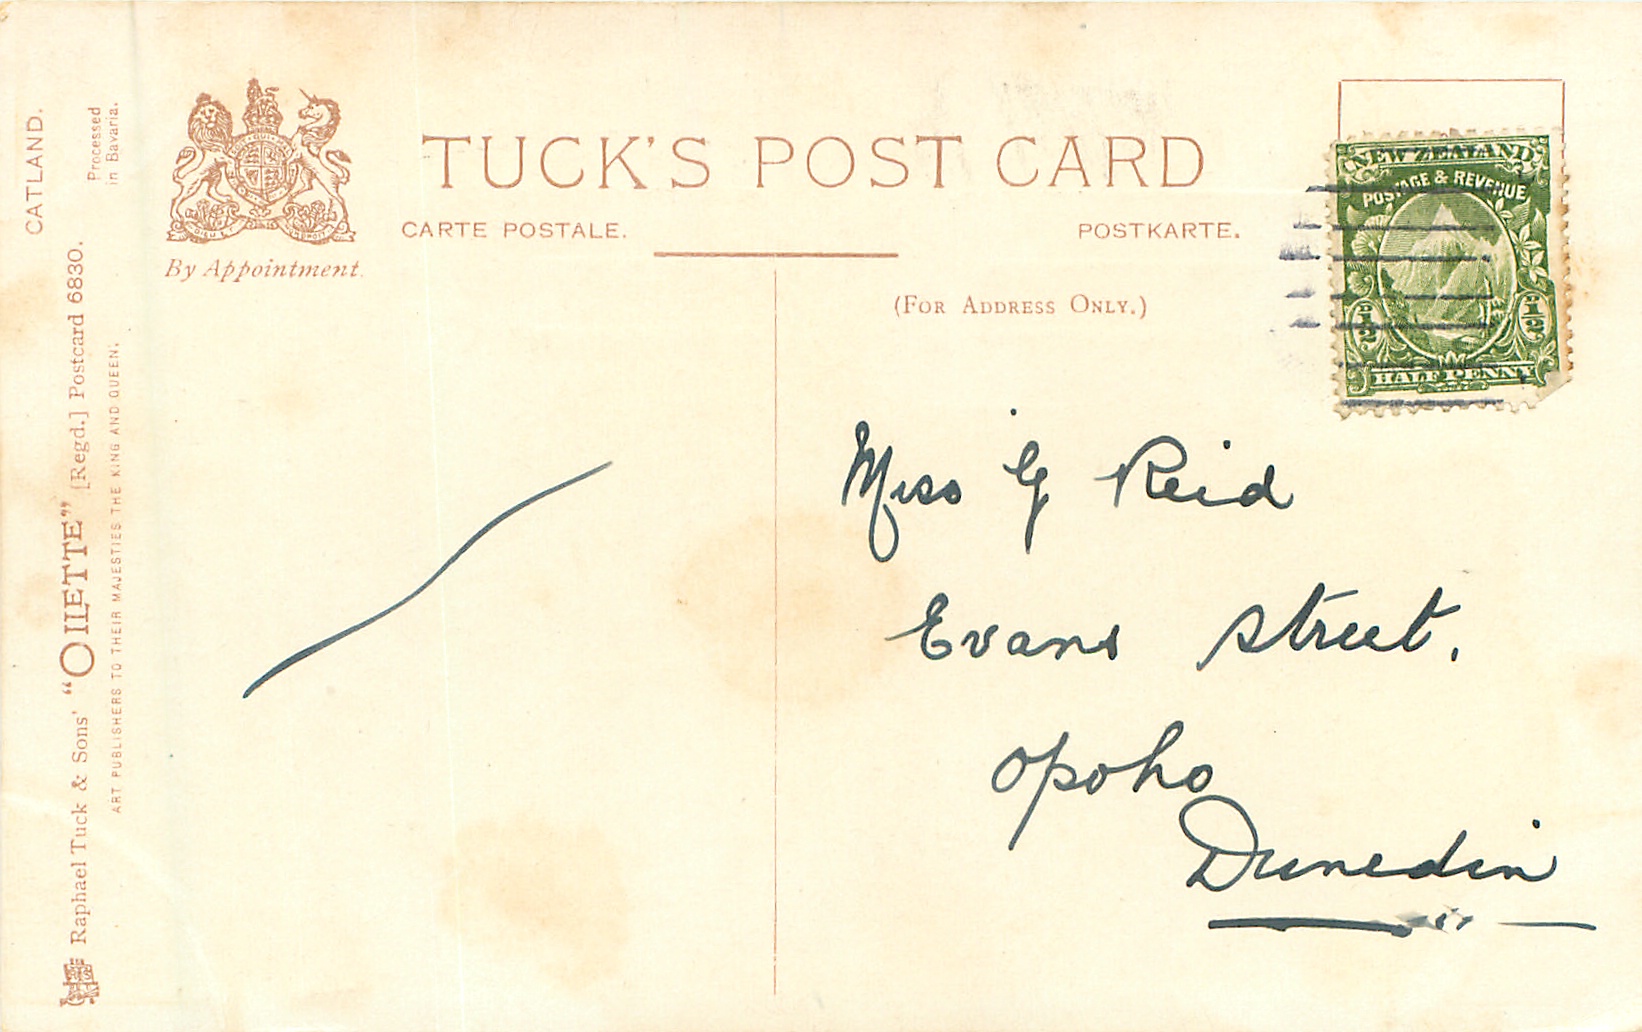 CATLAND.
Processed
in Bavaria.
Raphael Tuck & Sons' "OILETTE" [Regd.] Postcard 6830.
ART PUBLISHERS TO THEIR MAJESTIES THE KING AND QUEEN.
By Appointment.
TUCK'S POST CARD
CARTE POSTALE.
POSTKARTE.
(FOR ADDRESS ONLY.)
NEW ZEALAND
POSTAGE & REVENUE
½D ½D
HALF PENNY
Miss G Reid
Evans Street.
Opoho
Dunedin